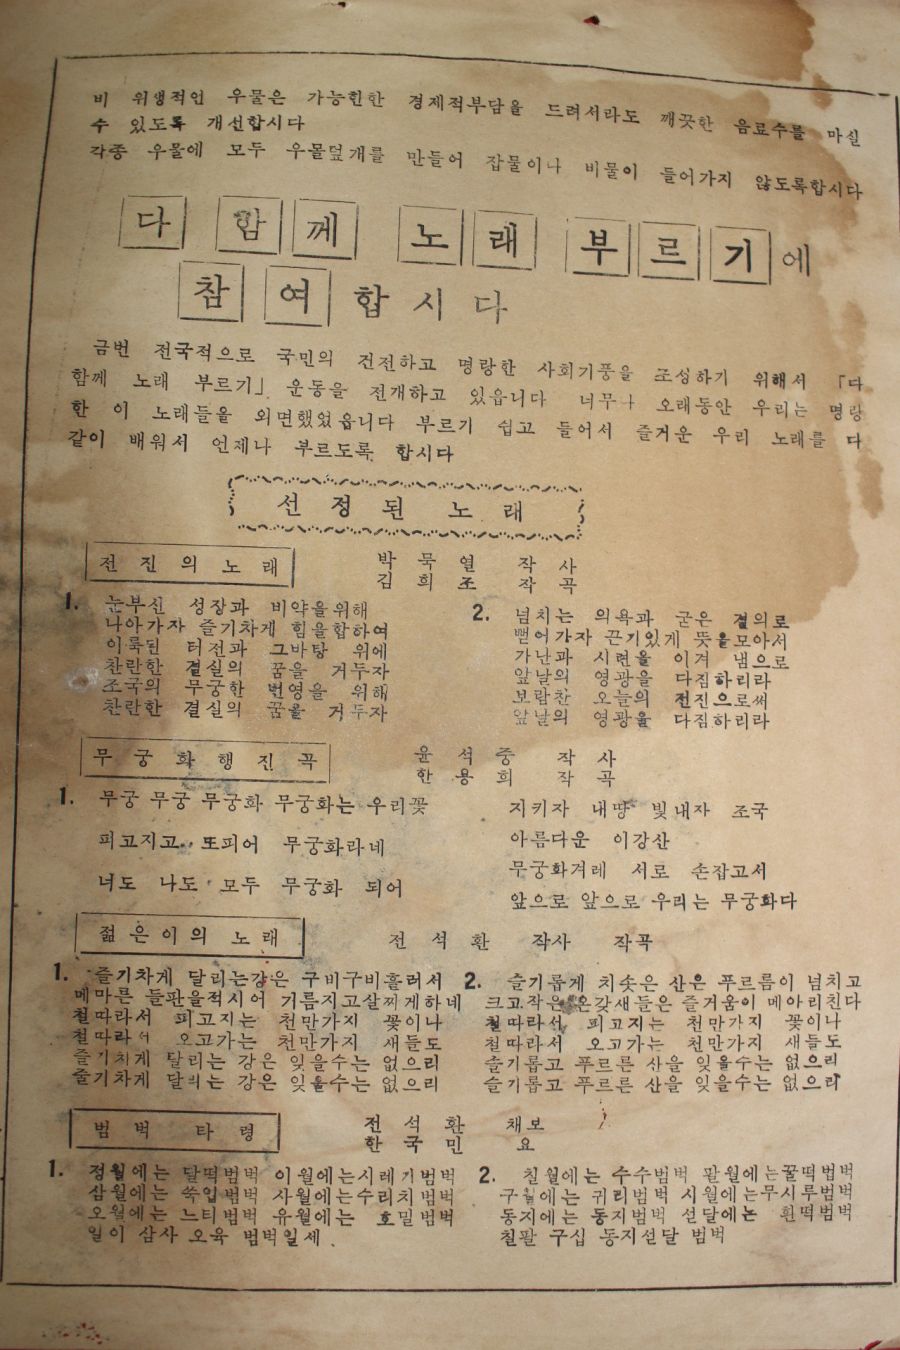 비 위생적인 우물은 가능한한 경제적부담을 드려서라도 깨끗한 음료수를 마실
수 있도록 개선합시다
각종 우물에 모두 우물덮개를 만들어 잡물이나 비물이 들어가지 않도록합시다
다 함께 노래 부르기에
참여합시다
금번 전국적으로 국민의 건전하고 명랑한 사회기풍을 조성하기 위해서 「다
함께 노래 부르기」 운동을 전개하고 있읍니다 너무나 오래동안 우리는 명랑
한 이 노래들을 외면했었읍니다 부르기 쉽고 들어서 즐거운 우리 노래를 다
같이 배워서 언제나 부르도록 합시다
선정된 노래
전진의 노래 박목열 작사
김희조 작곡
1. 눈부신 성장과 비약을위해
나아가자 즐기차게 힘을합하여
이룩된 터전과 그바탕 위에
찬란한 결실의 꿈을 거두자
조국의 무궁한 번영을 위해
찬란한 결실의 꿈을 거두자
2. 넘치는 의욕과 굳은 결의로
뻗어가자 끈기있게 뜻을모아서
가난과 시련을 이겨 냄으로
앞날의 영광을 다짐하리라
보람찬 오늘의 전진으로써
앞날의 영광을 다짐하리라
무궁화행진곡 윤석중 작사
한용희 작곡
1. 무궁 무궁 무궁화 무궁화는 우리꽃
피고지고.. 또피어 무궁화라네
너도 나도 모두 무궁화 되어
지키자 내땅 빛내자 조국
아름다운 이강산
무궁화겨레 서로 손잡고서
앞으로 앞으로 우리는 무궁화다
젊은이의 노래 전석환 작사 작곡
1. 즐기차게 달리는강은 구비구비흘러서
메마른 들판을적시어 기름지고살찌게하네
철따라서 피고지는 천만가지 꽃이나
철따라서 오고가는 천만가지 새들도
즐기차게 달리는 강은 잊을수는 없으리
줄기차게 달리는 강은 잊을수는 없으리
2. 슬기롭게 치솟은 산은 푸르름이 넘치고
크고작은 온갖새들은 즐거움이 메아리친다
철따라서 피고지는 천만가지 꽃이나
철따라서 오고가는 천만가지 새들도
슬기롭고 푸르른 산을 잊을수는 없으리
슬기롭고 푸르른 산을 잊을수는 없으리
범벅 타령 전석환 채보
한국민 요
1. 정월에는 달떡범벅 이월에는시레기범벅
삼월에는 쑥잎범벅 사월에는수리치범벅
오월에는 느티범벅 유월에는 호밀범벅
일이 삼사 오육 범벅일세
2. 칠월에는 수수범벅 팔월에는꿀떡범벅
구월에는 귀리범벅 시월에는무시루범벅
동지에는 동지범벅 섣달에는 흰떡범벅
칠팔 구십 동지섣달 범벅